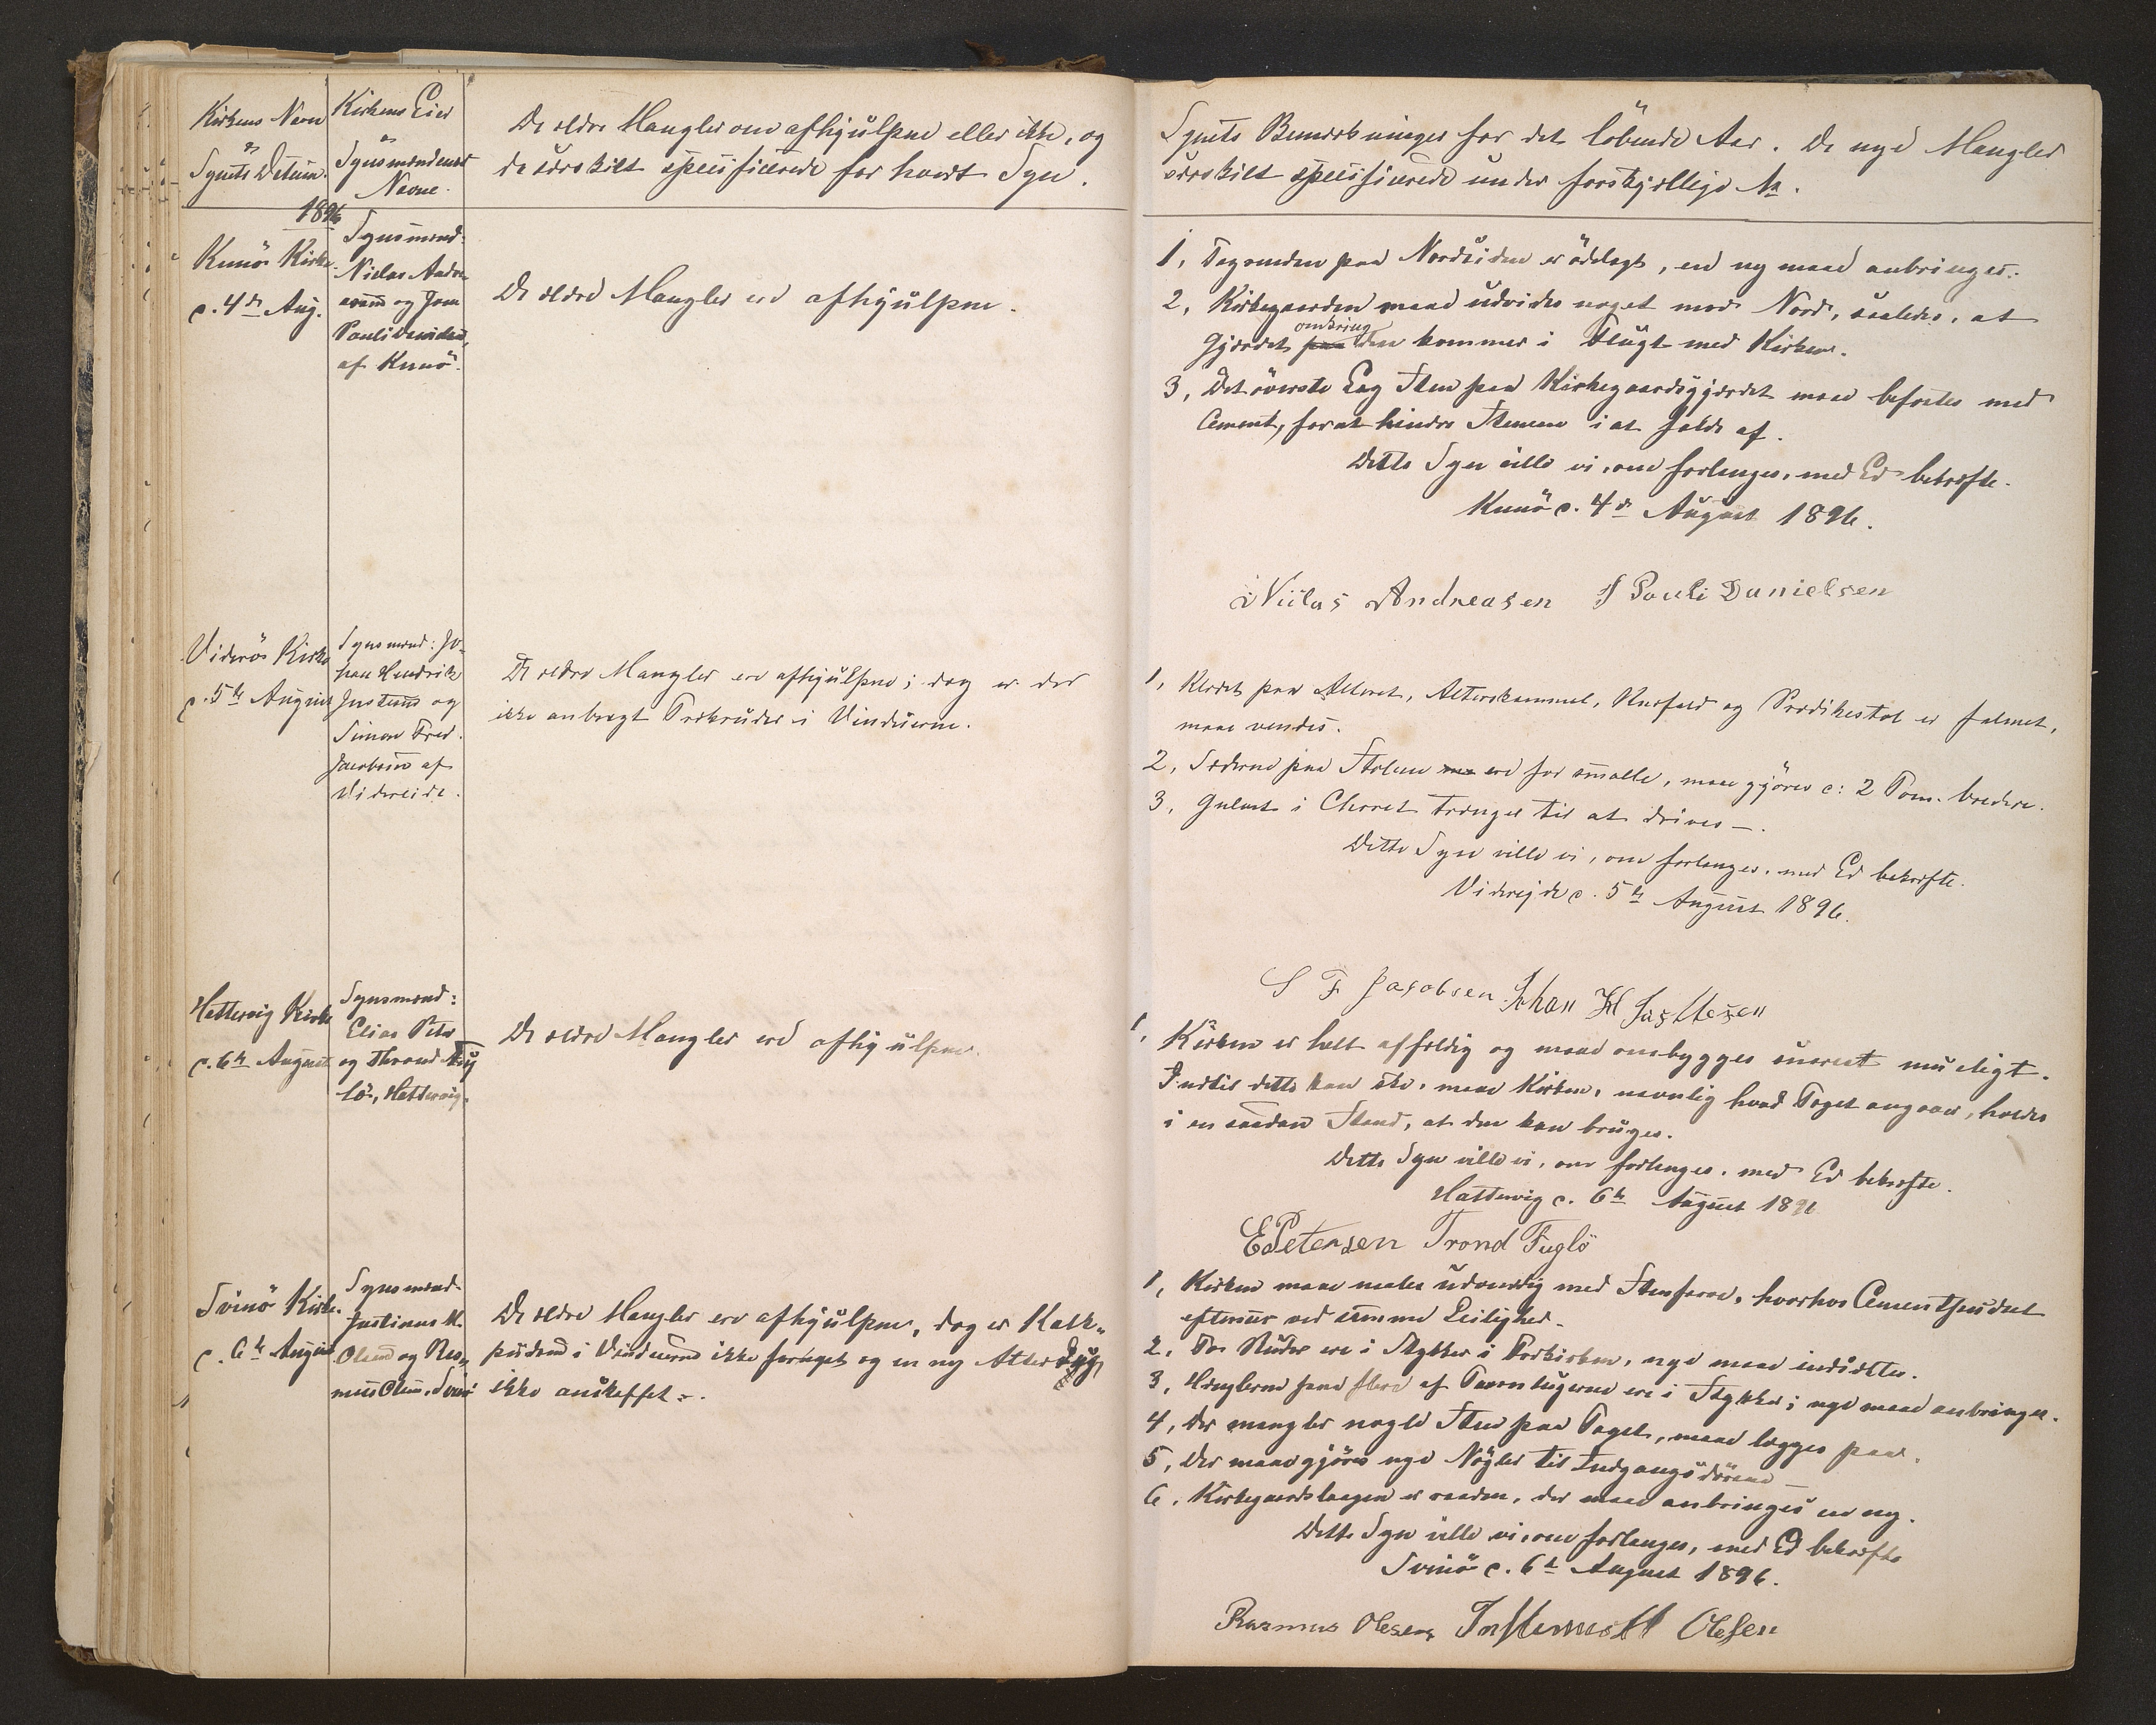 Kirkens Navn
og
Synets Datum.
Kirkens Eier
og
Synsmændenes
Navne.
De ældre Mangler om afhjulpne eller ikke, og
de særskilt specificerede for hvert Syn.
Synets Bemærkninger for det löbende Aar. De nye Mangler
særskilt specificerede under forskjellige No.
1896
Kunö Kirke
d. 4de Aug.
Synsmænd:
Niclas Andre-
asen og Joen
Pauli Danielsen,
af Kunö.
De ældre Mangler ere afhjulpne.
1, Tagrenden paa Nordsiden er ödelagt, en ny maae anbringes.
2, Kirkegaarden maae udvides noget mod Nord, saaledes, at
Gjærdet omkring den kommer i Flugt med Kirken.
3, Det överste Lag Sten paa Kirkegaardsgjærdet maae befæstes med
Cement, for at hindre Stenene i at falde af.
Dette Syn ville vi, om forlanges, med Ed bekræfte.
Kunö d. 4de August 1896.
Niclas Andreasen J Pauli Danielsen
Viderö Kirke
d. 5te August
Synsmænd: Jo-
han Hendrik
Justesen og
Simon Fred.
Jacobsen af
Videreide.
De ældre Mangler ere afhjulpne; dog er der
ikke anbragt Trækruder i Vinduerne.
1, Klædet paa Alteret, Alterskammel, Knæfald og Prædikestol er falmet,
maae vendes.
2, Sæderne paa Stolene ere for smalle, maae gjöres c: 2 Tom. bredere.
3, Gulvet i Choret trænger til at drives —.
Dette Syn ville vi, om forlanges, med Ed bekræfte.
Viderejde d. 5te August 1896.
S F Jacobsen Johan H Justesen
Hattervig Kirke
d. 6te August
Synsmænd:
Elias Peter
og Thrond Fug
lö, Hattervig.
De ældre Mangler ere afhjulpne.
1, Kirken er helt affældig og maae ombygges snarest mueligt.
Indtil dette kan ske, maae Kirken, navnlig hvad Taget angaaer, holdes
i en saadan Stand, at den kan bruges.
Dette Syn ville vi, om forlanges, med Ed bekræfte.
Hattervig d. 6te August 1896
E Petersen Trond Fuglö
Svinö Kirke.
d. 6te August
Synsmænd.
Justinus M.
Olsen og Ras„
mus Olsen, Svinö
De ældre Mangler ere afhjulpne, dog er Kalk„
pudsen i Vinduerne ikke fornyet og en ny Alter Dug
ikke anskaffet —.
1, Kirken maae males udvendig med Stenfarve, hvorhos Cementpudset
eftersees ved samme Leilighed.
2, To Ruder ere i Stykker i Forkirken, nye maae indsættes.
3, Hængslerne paa flere af Taarnlugerne ere i Stykker; nye maae anbringes.
4, Der mangler nogle Sten paa Taget, maae lægges paa.
5, Der maae gjöres nye Nögler til Indgangsdörene —
6, Kirkegaardslaagen er raaden, der maae anbringes en ny.
Dette Syn ville vi, om forlanges, med Ed bekræfte
Svinö d. 6te August 1896.
Rasmus Olesen Justinus M Olesen